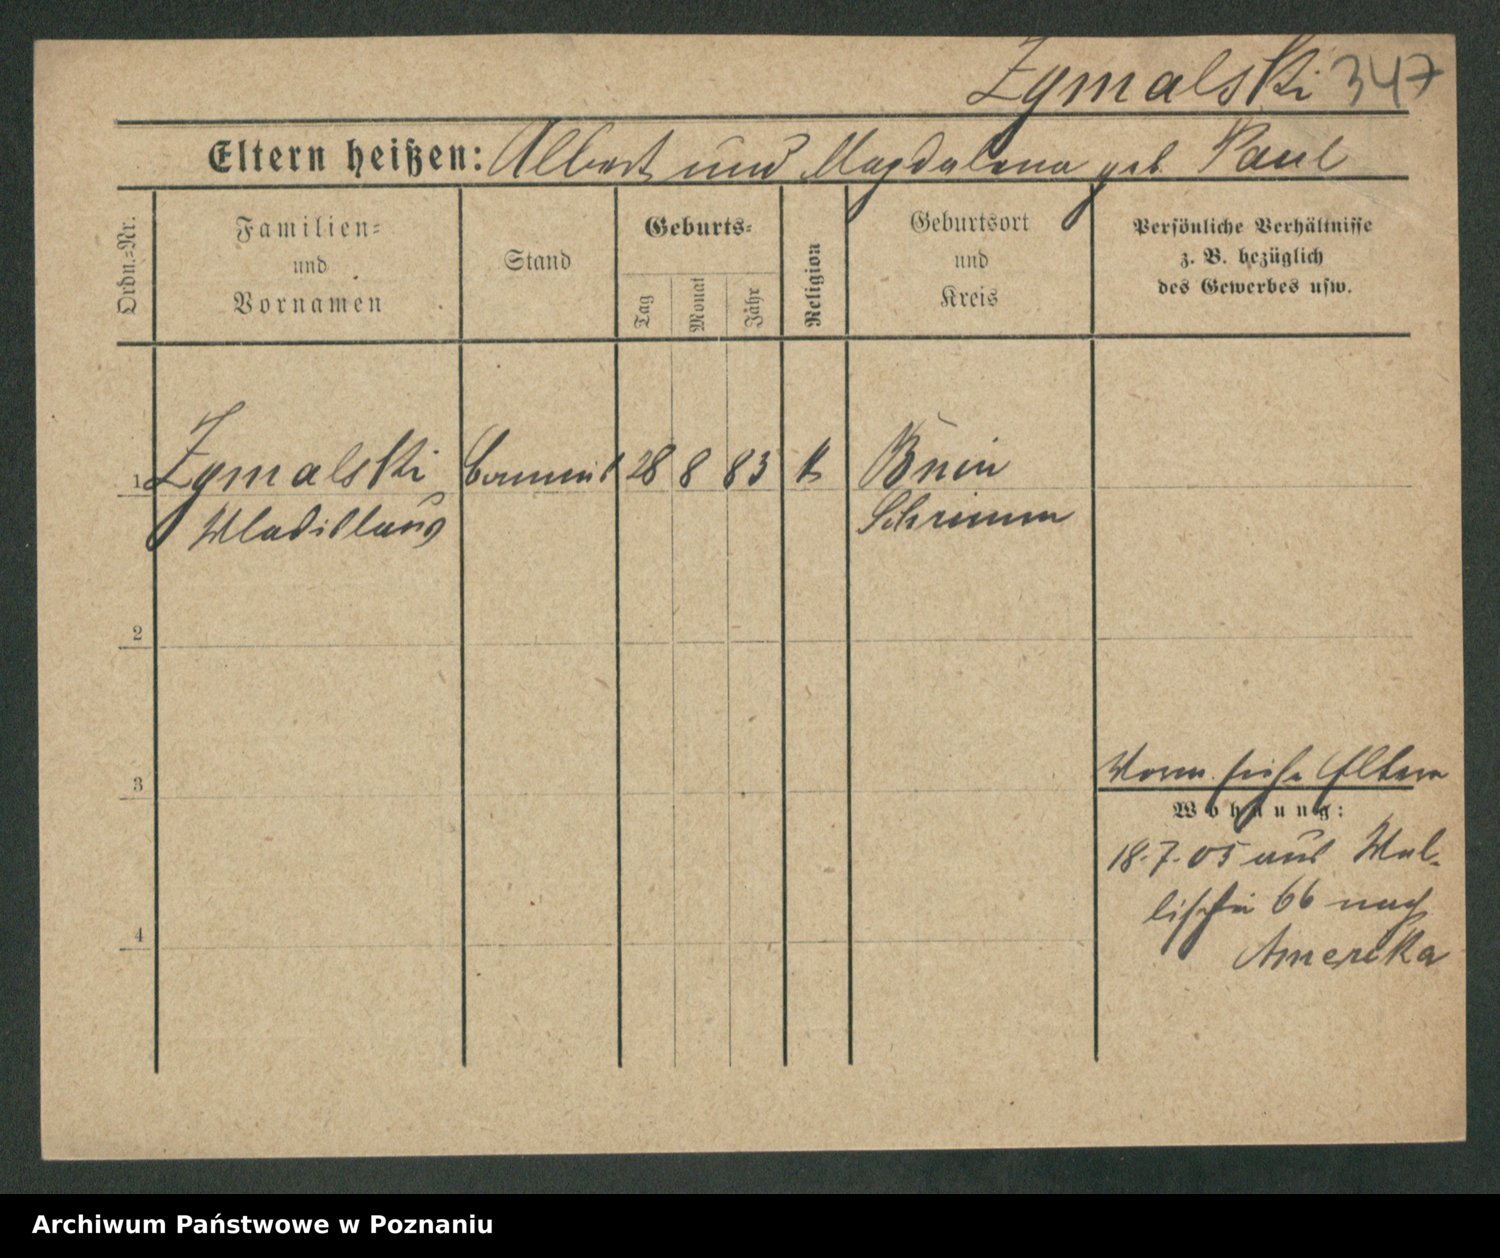 Zymalski 347
Eltern heißen: Albert und Magdalena geb. Paul
Ordn.-Nr.
Familien-
und
Vornamen
Stand
Geburts-
Tag
Monat
Jahr
Religion
Geburtsort
und
Kreis
Persönliche Verhältnisse
z. B. bezüglich
des Gewerbes usw.
1 Zymalski 28 8 83 k Bnin
Wladislaus Schrimm
2
3
4
siehe Eltern
Wohnung:
18.7.05 aus Wal-
lischei 66 nach
Amerika
Archiwum Państwowe w Poznaniu